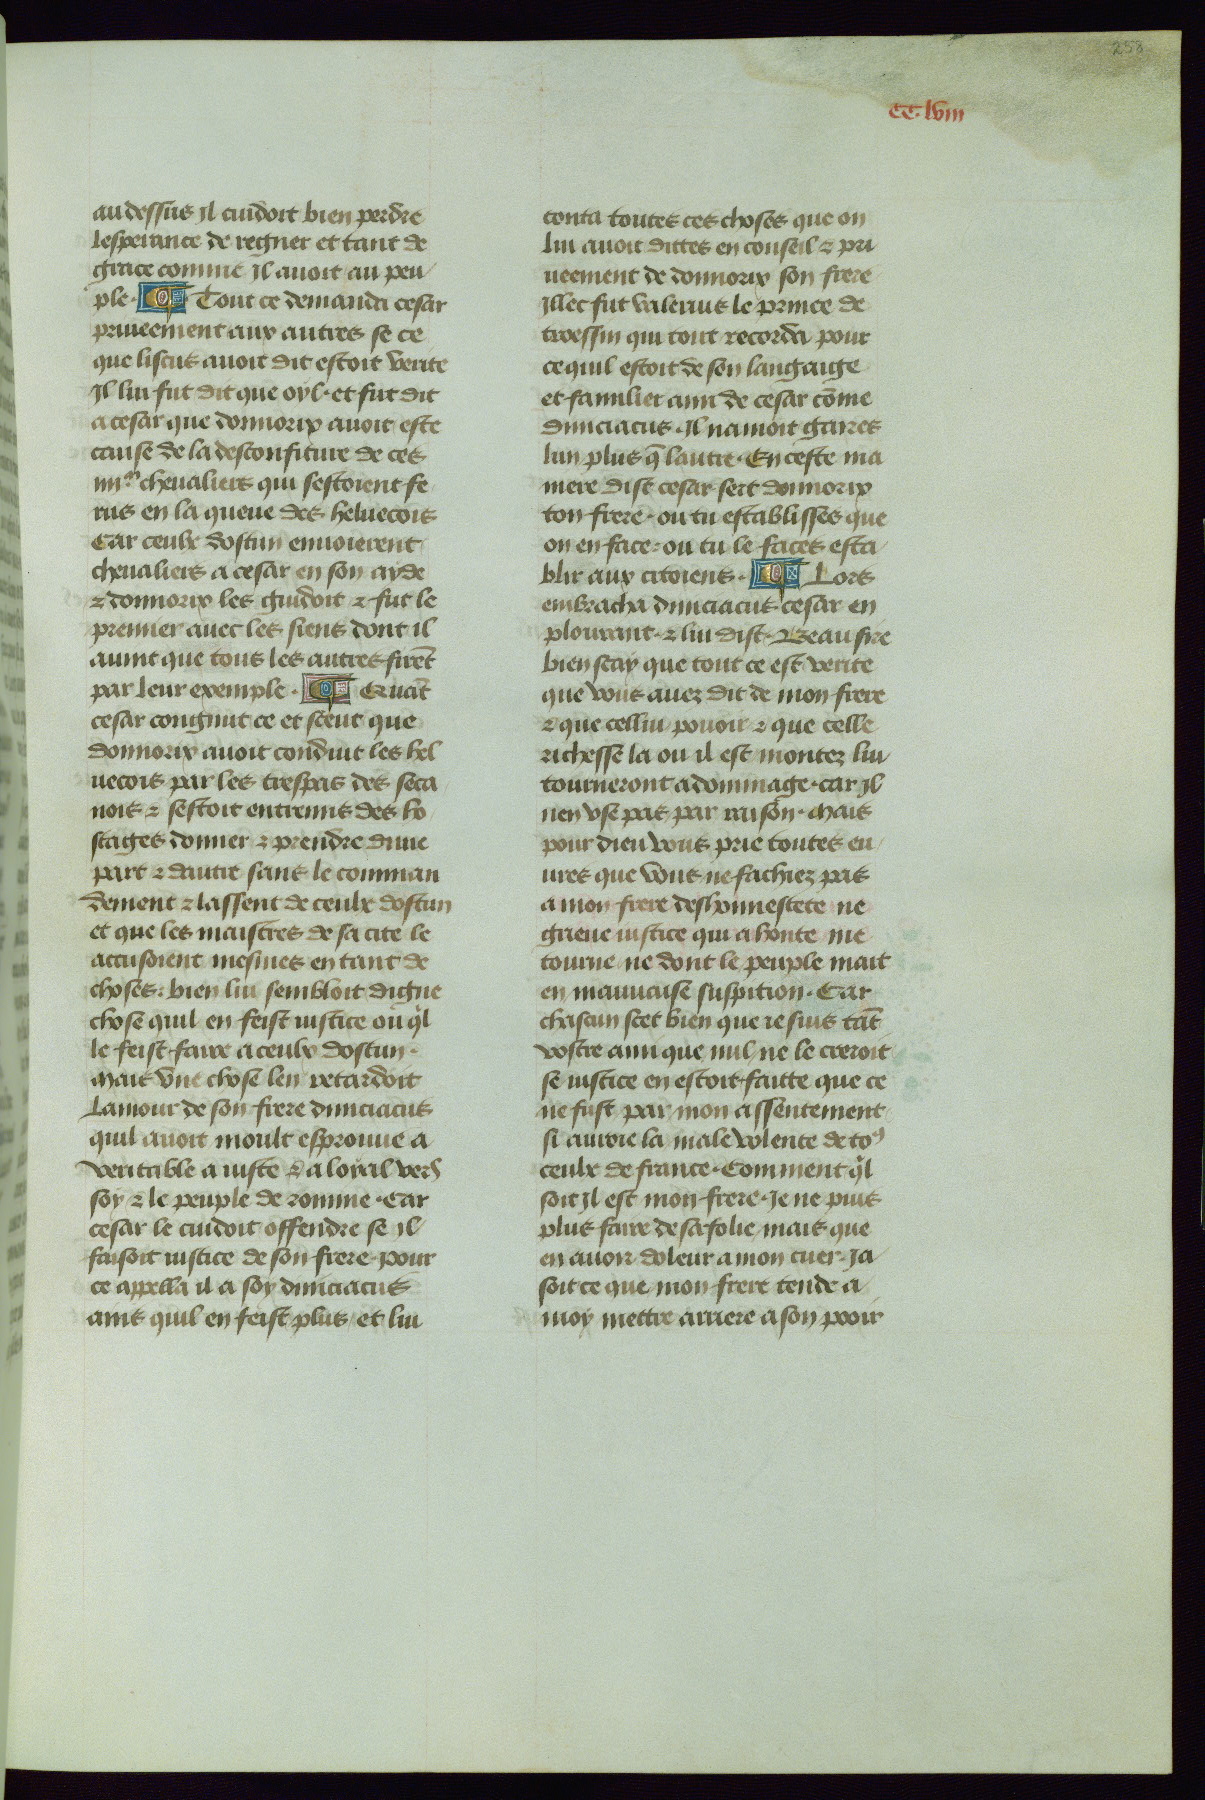 258
CC. lviii
au dessus il cuidoit bien perdre
lesperance de regner et tant de
grace comme il auoit au peu
ple. Tout ce demanda cesar
priueement aux autres se ce
que liscus auoit dit estoit verite
Il lui fut dit que oyl. et fut dit
a cesar que donnorix auoit este
cause de la desconfiture de ces
iiiiᵐ cheualiers qui sestoient fe
rus en la queue des heluecois
Car ceulx dostun enuoierent
cheualiers a cesar en son ayde
⁊ donnorix les guidoit ⁊ fut le
premier auec les siens dont il
auint que tous les autres firēt
par leur exemple. Quāt
cesar congnut ce et sceut que
donnorix auoit conduit les hel
uecois par les trespas des seca
nois ⁊ sestoit entremis des ho
stages donner ⁊ prendre dune
part ⁊ dautre sans le comman
dement ⁊ lassent de ceulx dostun
et que les maistres de sa cite le
accusoient mesmes en tant de
choses: bien lui sembloit digne
chose quil en feist iustice ou q̄l
le feist faire a ceulx dostun.
Mais vne chose len retardoit
Lamour de son frere diuiciacus
quil auoit moult esprouue a
veritable a iuste ⁊ a loyal vers
soy ⁊ le peuple de romme. Car
cesar le cuidoit offendre se il
faisoit iustice de son frere. pour
ce appella il a soy diuiciacus
ains quil en feist plus et lui
conta toutes ces choses que on
lui auoit dittes en conseil ⁊ pri
ueement de donnorix son frere
Illec fut valerius le prince de
troessin qui tout recorda pour
ce quil estoit de son langaige
et familier ami de cesar cōme
diuiciacus. Il namoit gaires
lun plus q̄ lautre. En ceste ma
niere dist cesar sert donnorix
ton frere. ou tu establisses que
on en face: ou tu le faces esta
blir aux citoiens. Lors
embracha diuiciacus cesar en
plourant. ⁊ lui dist. Beau sire
bien scay que tout ce est verite
que vous auez dit de mon frere
⁊ que cellui pouoir ⁊ que celle
richesse la ou il est montez lui
tourneront a dommage. car il
nen vse pas par raison. Mais
pour dieu vous prie toutes eu
ures que vous ne fachiez pas
a mon frere deshonnestete ne
grieue iustice qui a honte me
tourne ne dont le peuple mait
en mauuaise suspition. Car
chascun scet bien que ie suis tāt
vostre ami que nul ne le creroit
se iustice en estoit faitte que ce
ne fust par mon assentement
si auroie la male volente de toꝰ
ceulx de france. Comment q̄l
soit il est mon frere. Je ne puis
plus faire de sa folie mais que
en auoir doleur a mon cuer. Ja
soit ce que mon frere tende a
moy mettre arriere a son pooir